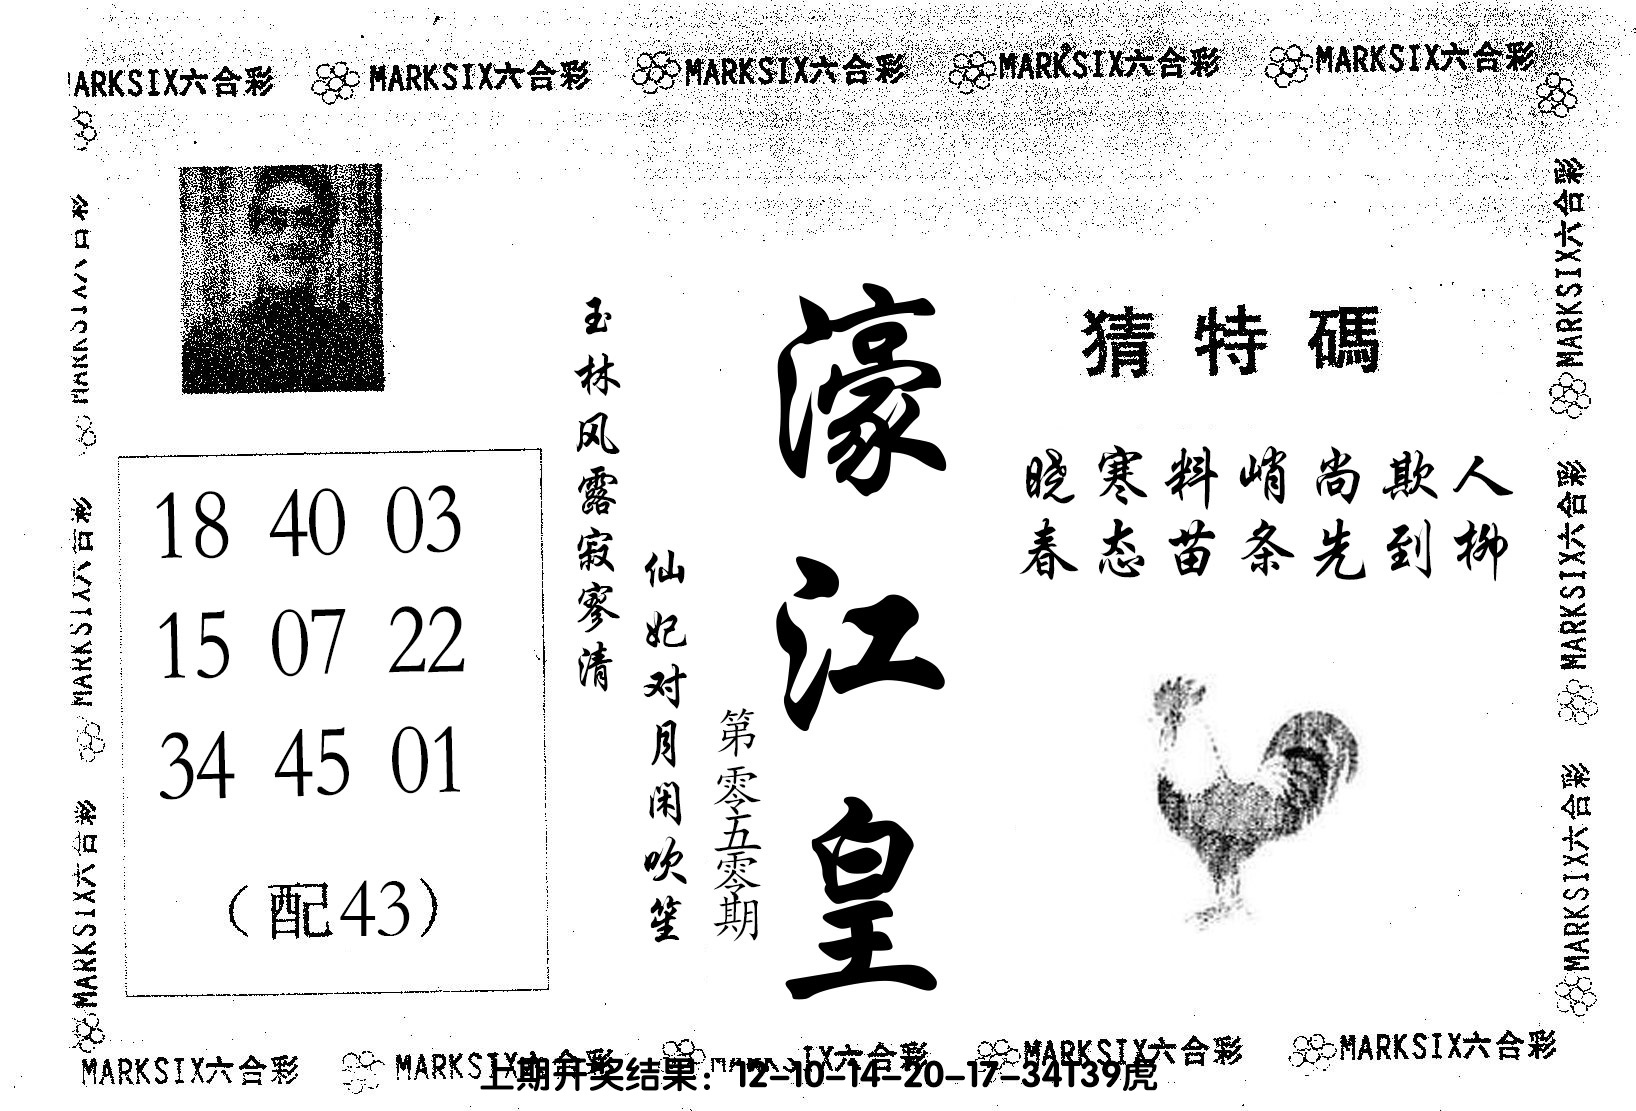 MARKSIX六合彩 MARKSIX六合彩 MARKSIX六合彩 MARKSIX六合彩 MARKSIX六合彩
猜特碼
晓寒料峭尚欺人
春态苗条先到柳
濠江皇
第零五零期
玉林风露寂寥清
仙妃对月闲吹笙
18 40 03
15 07 22
34 45 01
（配43）
MARKSIX六合彩
MARKSIX六合彩
MARKSIX六合彩
MARKSIX六合彩
MARKSIX六合彩
MARKSIX六合彩
MARKSIX六合彩 MARKSIX六合彩 MARKSIX六合彩 MARKSIX六合彩 MARKSIX六合彩
上期开奖结果：12-10-14-20-17-34T39虎